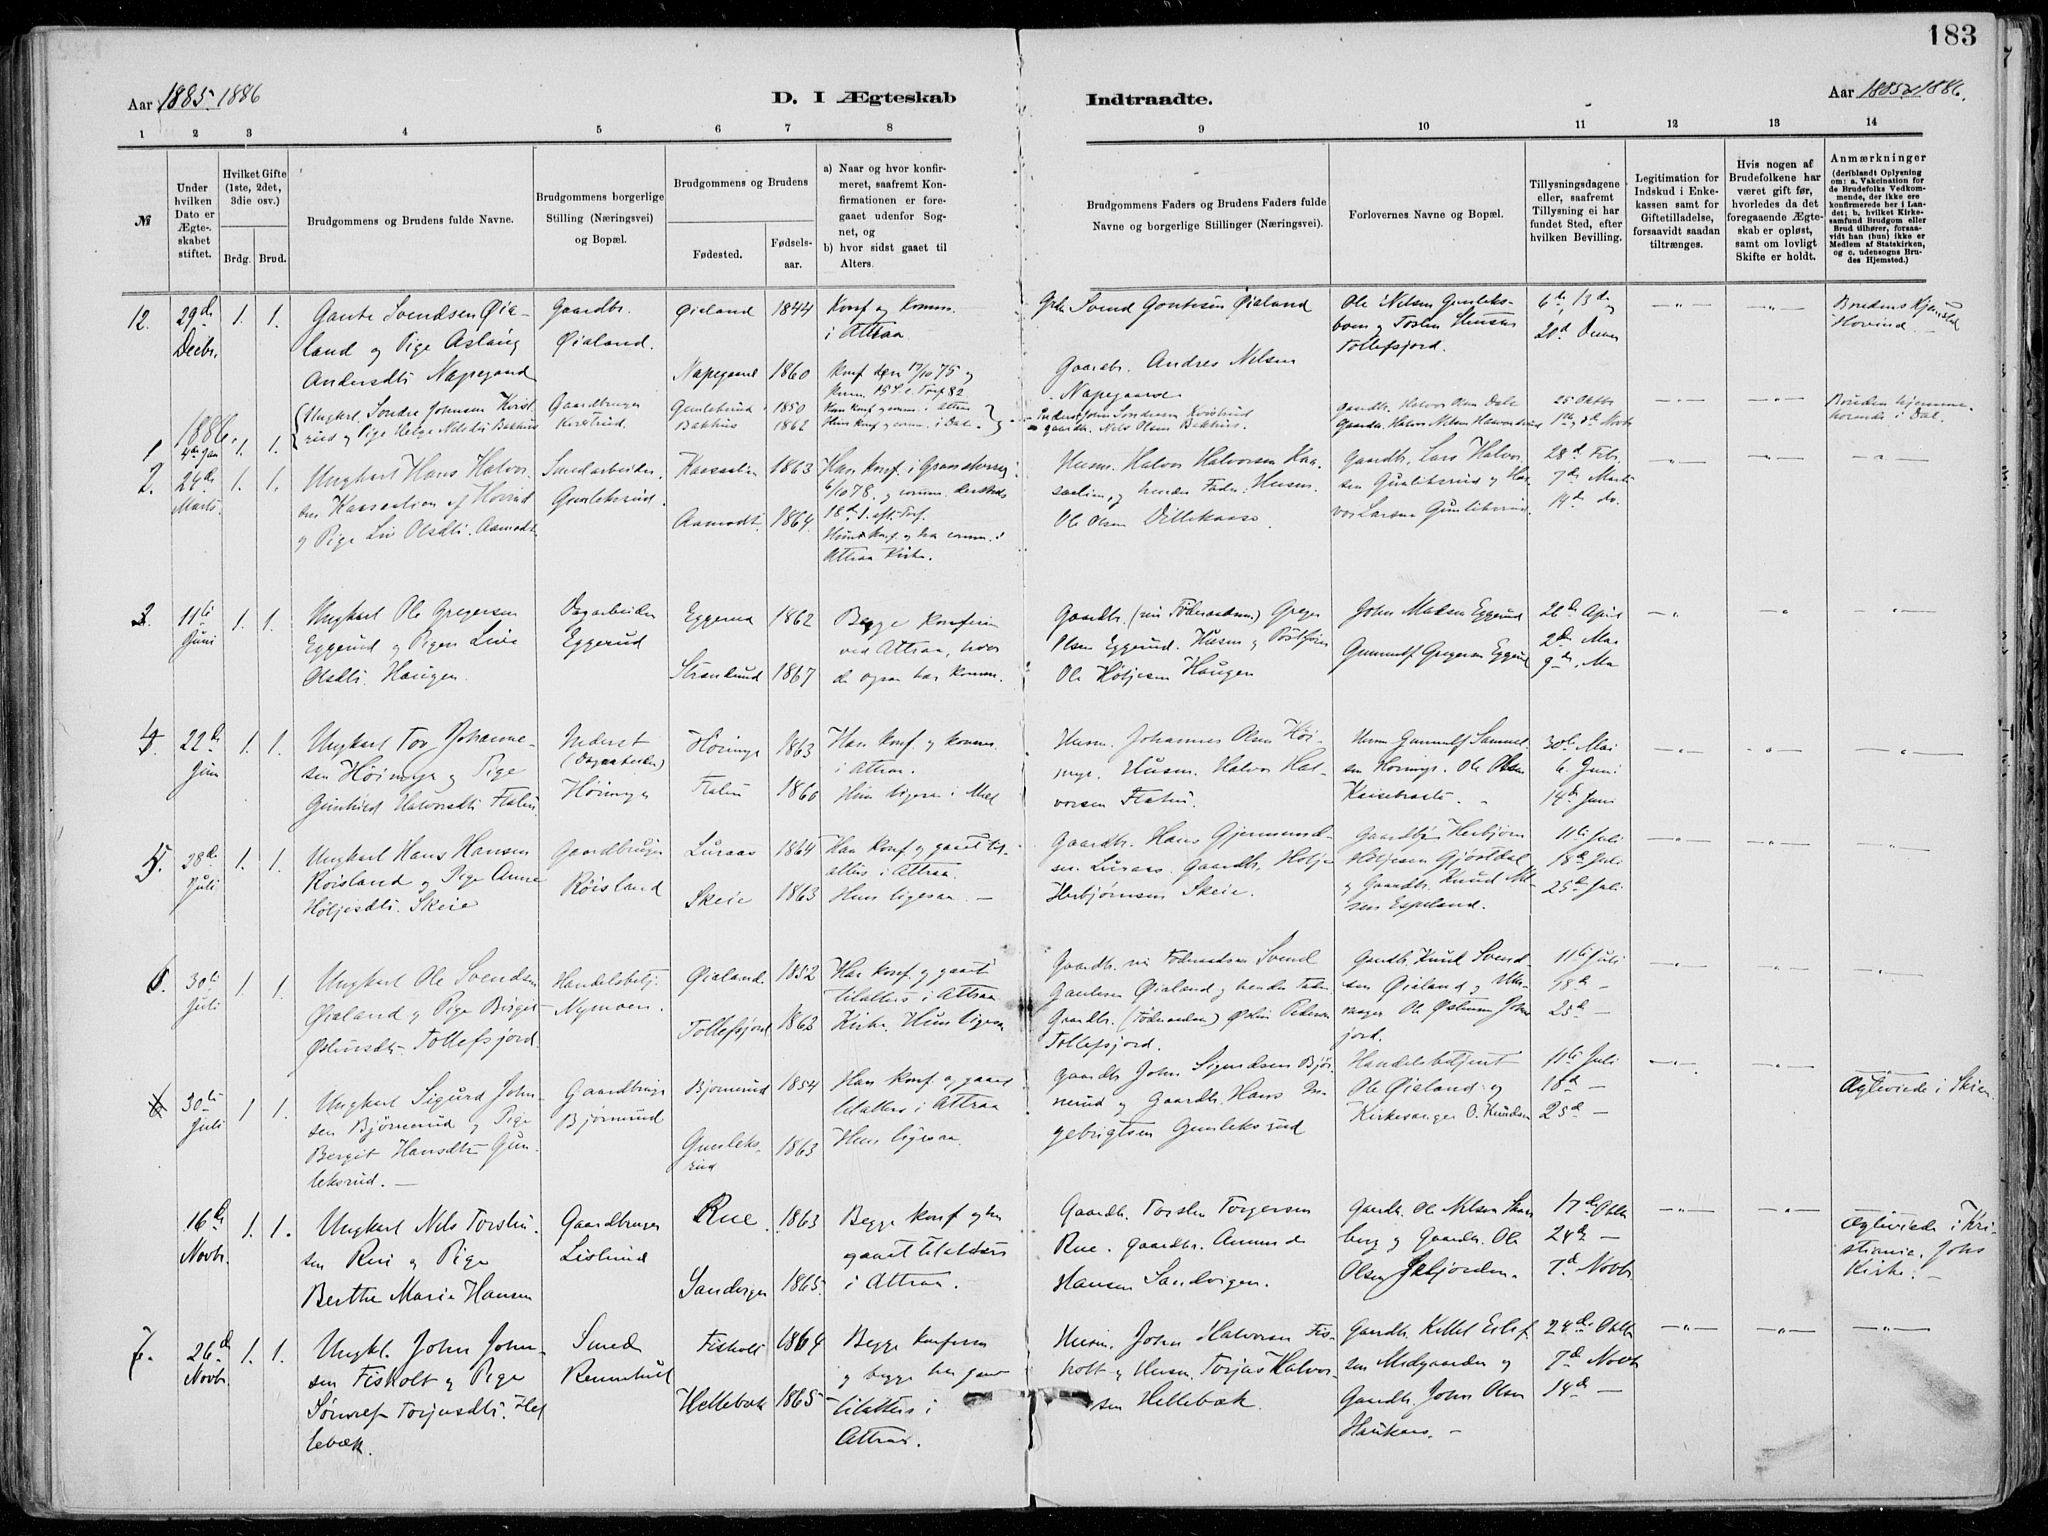 183
Aar 1885. 1886
D. I Ægteskab
Indtraadte.
Aar 1885 1886.
1 2 3 4 5 6 7 8 9 10 11 12 13 14
№
Under hvilken Dato er Ægteskabet stiftet.
Hvilket Gifte (1ste, 2det, 3die osv.)
Brdg. Brud.
Brudgommens og Brudens fulde Navne.
Brudgommens borgerlige Stilling (Næringsvei) og Bopæl.
Brudgommens og Brudens
Fødested.
Fødselsaar.
a) Naar og hvor konfirmeret, saafremt Konfirmationen er foregaaet udenfor Sognet, og
b) hvor sidst gaaet til Alters.
Brudgommens Faders og Brudens Faders fulde Navne og borgerlige Stillinger (Næringsvei).
Forlovernes Navne og Bopæl.
Tillysningsdagene eller, saafremt Tillysning ei har fundet Sted, efter hvilken Bevilling.
Legitimation for Indskud i Enkekassen samt for Giftetilladelse, forsaavidt saadan tiltrænges.
Hvis nogen af Brudefolkene har været gift før, hvorledes da det foregaaende Ægteskab er opløst, samt om lovligt Skifte er holdt.
Anmærkninger
(deriblandt Oplysning om: a. Vakcination for de Brudefolks Vedkommende, der ikke ere konfirmerede her i Landet; b. hvilket Kirkesamfund Brudgom eller Brud tilhører, forsaavidt han (hun) ikke er Medlem af Statskirken, og c. udensogns Brudes Hjemsted.)
12. 29de Decbr. 1. 1.
Gaute Svendsen Øialand og Pige Aslaug Andersdtr Napegaard
Gaardbr. Øialand.
Øialand 1844
Napegaard 1860
Konf og komm. i Attraa
Konf den 17/10 75 og
Svend Gautesen Øialand
Gaardbr. Andres Nilsen Napegaard
Ole Nilsen Gunleks og Torsten Tollefsjord.
6te, 13de og 20d Decem
Brudens Hjemsted Hovind
1886.
1 4de Jan 1. 1.
Ungkarl Sondre Johnsen Korstrud og Pige Helge Nilsdtr Bakhus
Gaardbruger Korstrud.
Gunleksrud 1850
Bakhus 1862
Han konf og comm. i Attraa
Hun konf og comm. i Dal.
John Sondresen Korstrud
gaardbr. Nils Olsen Bakhus.
Gaardbr. Halvor Olsen Dale
Gaardbr. Halvor Nilsen
25 Oktbr
1ste og 8de Novb
Bruden hjemmehørende i Dal.
2. 24de Marts 1. 1.
Ungkarl Hans Halvorsen Kaasalien af Hovind og Pige Liv Olsdtr. Aamodt
Smedarbeider, Gunleksrud.
Kaasalien 1863
Aamodt. 1864.
Han konf. i Gransherred 6/10 78. og comm. dersteds
Hun konf og har comm. i Attraa Kirke.
Husm. Halvor Halvorsen Kaasalien, og hendes Fader: Husm. Ole Olsen Villekaase.
Gaardbr. Lars Halvorsen Gunleksrud og Halvor Larsen Gunleksrud.
28d Feb. 7de Marts 14de do.
3. 11te Juni 1. 1.
Ungkarl Ole Gregersen Eggerud og Pigen Live Olsdtr. Haugen.
Dagarbeider Eggerud
Eggerud 1862
1867
Begge konfirm ved Attraa, hvor de ogsaa har komm.
Gaardbr. (nu Føderaadsm.) Greger Olsen Eggerud. Husm og Ole Høljesen Haugen
John Madsen Eggerud
Gunnulf Gregersen Eggerud
26de April 2den Mai 9de Mai
4 22de Jun 1. 1.
Ungkarl Tov Johannesen Høimyr og Pige Gunhild Halvorsdtr Flatin
Inderst (Dagarbeider) Høimyr
Høimyr 1863
Flatin 1860
Han konf. og komm. i Attraa.
Hun ligesaa i Mæl
Husm. Johannes Olsen Høimyr. Husm. Halvor Halvorsen Flatin.
Husm Gunnulf Samuelsen Høimyr. Ole Olsen
30te Mai 6. Juni 14de Juni
5. 28de Juli 1. 1.
Ungkarl Hans Hansen Røisland og Pige Anne Høljesdtr. Skeie
Gaardbruger Røisland
Luraas 1864
Skeie 1863
Han konf og gaaet til alters i Attraa.
Hun ligesaa. —
Gaardbr. Hans Gjermundsen Luraas. Gaardbr. Holje Herbjørnsen Skeie.
Gaardbr. Herbjørn Høljesen Gjøstdal og Gaardbr. Knud Nilsen Espeland.
11te Juli 18de Juli 25de Juli
6. 30te Juli 1. 1.
Ungkarl Ole Svendsen Øialand og Pige Birgit Østensdtr. Tollefsjord.
Handelsbetj. Nymoen.
Øialand. 1852
Tollefsjord 1862
Han konf. og gaaet tilalters i Attraa Kirke. Hun ligesaa
Gaardbr. nu Føderaadsm Svend Gautesen Øialand og hendes Fader Gaardbr. (Føderaadsm) Østen Pedersen Tollefsjord.
Gaardbr. Knud Svendsen Øialand og Ole Østensen
11te Juli 18de — 25de —
30te Juli 1 1.
Ungkarl Sigurd Johnsen Bjørnerud og Pige Bergit Hansdtr Gunleksrud. —
Gaardbruger Bjørnerud
Bjørnerud 1854
Gunleksrud 1863
Han konf. og gaaet tilalters i Attraa
Hun ligesaa.
Gaardbr John Sigurdsen Bjørnerud og Gaardbr. Hans Ingebrigtsen Gunleksrud
Handelsbetjent Ole Øialand og Kirkesanger O. Knudsen
11te Juli 18d — 25d —
Ægteviede i Skien
16de Novbr. 1. 1.
Ungkarl Nils Torstensen Rue og Pige Berthe Marie Hansen
Gaardbruger Lislerud
Rue. 1863
Sandvigen 1865.
Begge konf og har gaaet tilalters i Attraa.
Gaardbr. Torsten Torgersen Rue. Gaardbr. Amund Hansen Sandvigen.
Gaardbr. Ole Nilsen og Gaardbr. Ole Olsen
17de Oktbr 24de — 7d Novbr
Ægteviede i Kristiania, Johs Kirke. —
7. 26de Novbr. 1. 1.
Ungkl. John Johnsen Fisholt og Pige Torjusdtr. Hellebæk.
Smed
Fisholt 1864
Hellebæk 1865
Begge konfirm og begge har gaaet tilalters i Attraa.
Husm. John Halvorsen Fisholt og Husm. Torjus Halvorsen Hellebæk.
Gaardbr. Kittel Eilefsen Midgaarden og Gaardbr. John Olsen Haukaas. —
24de Oktbr 7d Novbr 14de —